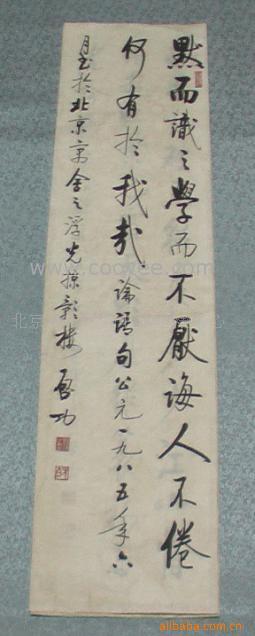 默而識之學而不厭誨人不倦
何有於我哉論語句公元一九八五年六
月書於北京寓舍之浮光掠影樓 啟功
www.coowee.com
北京
alibaba.com.cn